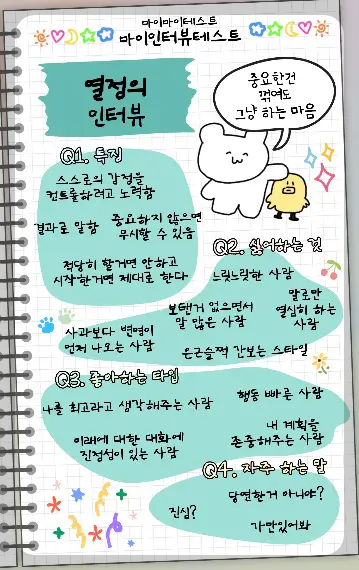 마이마이테스트
마이인터뷰테스트
열정의
인터뷰
중요한건
꺾여도
그냥 하는 마음
Q1. 특징
스스로의 감정을
컨트롤하려고 노력함
결과로 말함
중요하지 않으면
무시할 수 있음
적당히 할거면 안하고
시작한거면 제대로 한다
Q2. 싫어하는 것
느릿느릿한 사람
보탠거 없으면서
말 많은 사람
말로만
열심히 하는
사람
사과보다 변명이
먼저 나오는 사람
은근슬쩍 간보는 스타일
Q3. 좋아하는 타입
나를 최고라고 생각해주는 사람
행동 빠른 사람
미래에 대한 대화에
진정성이 있는 사람
내 계획을
존중해주는 사람
Q4. 자주 하는 말
당연한거 아니야?
진심?
가만있어봐